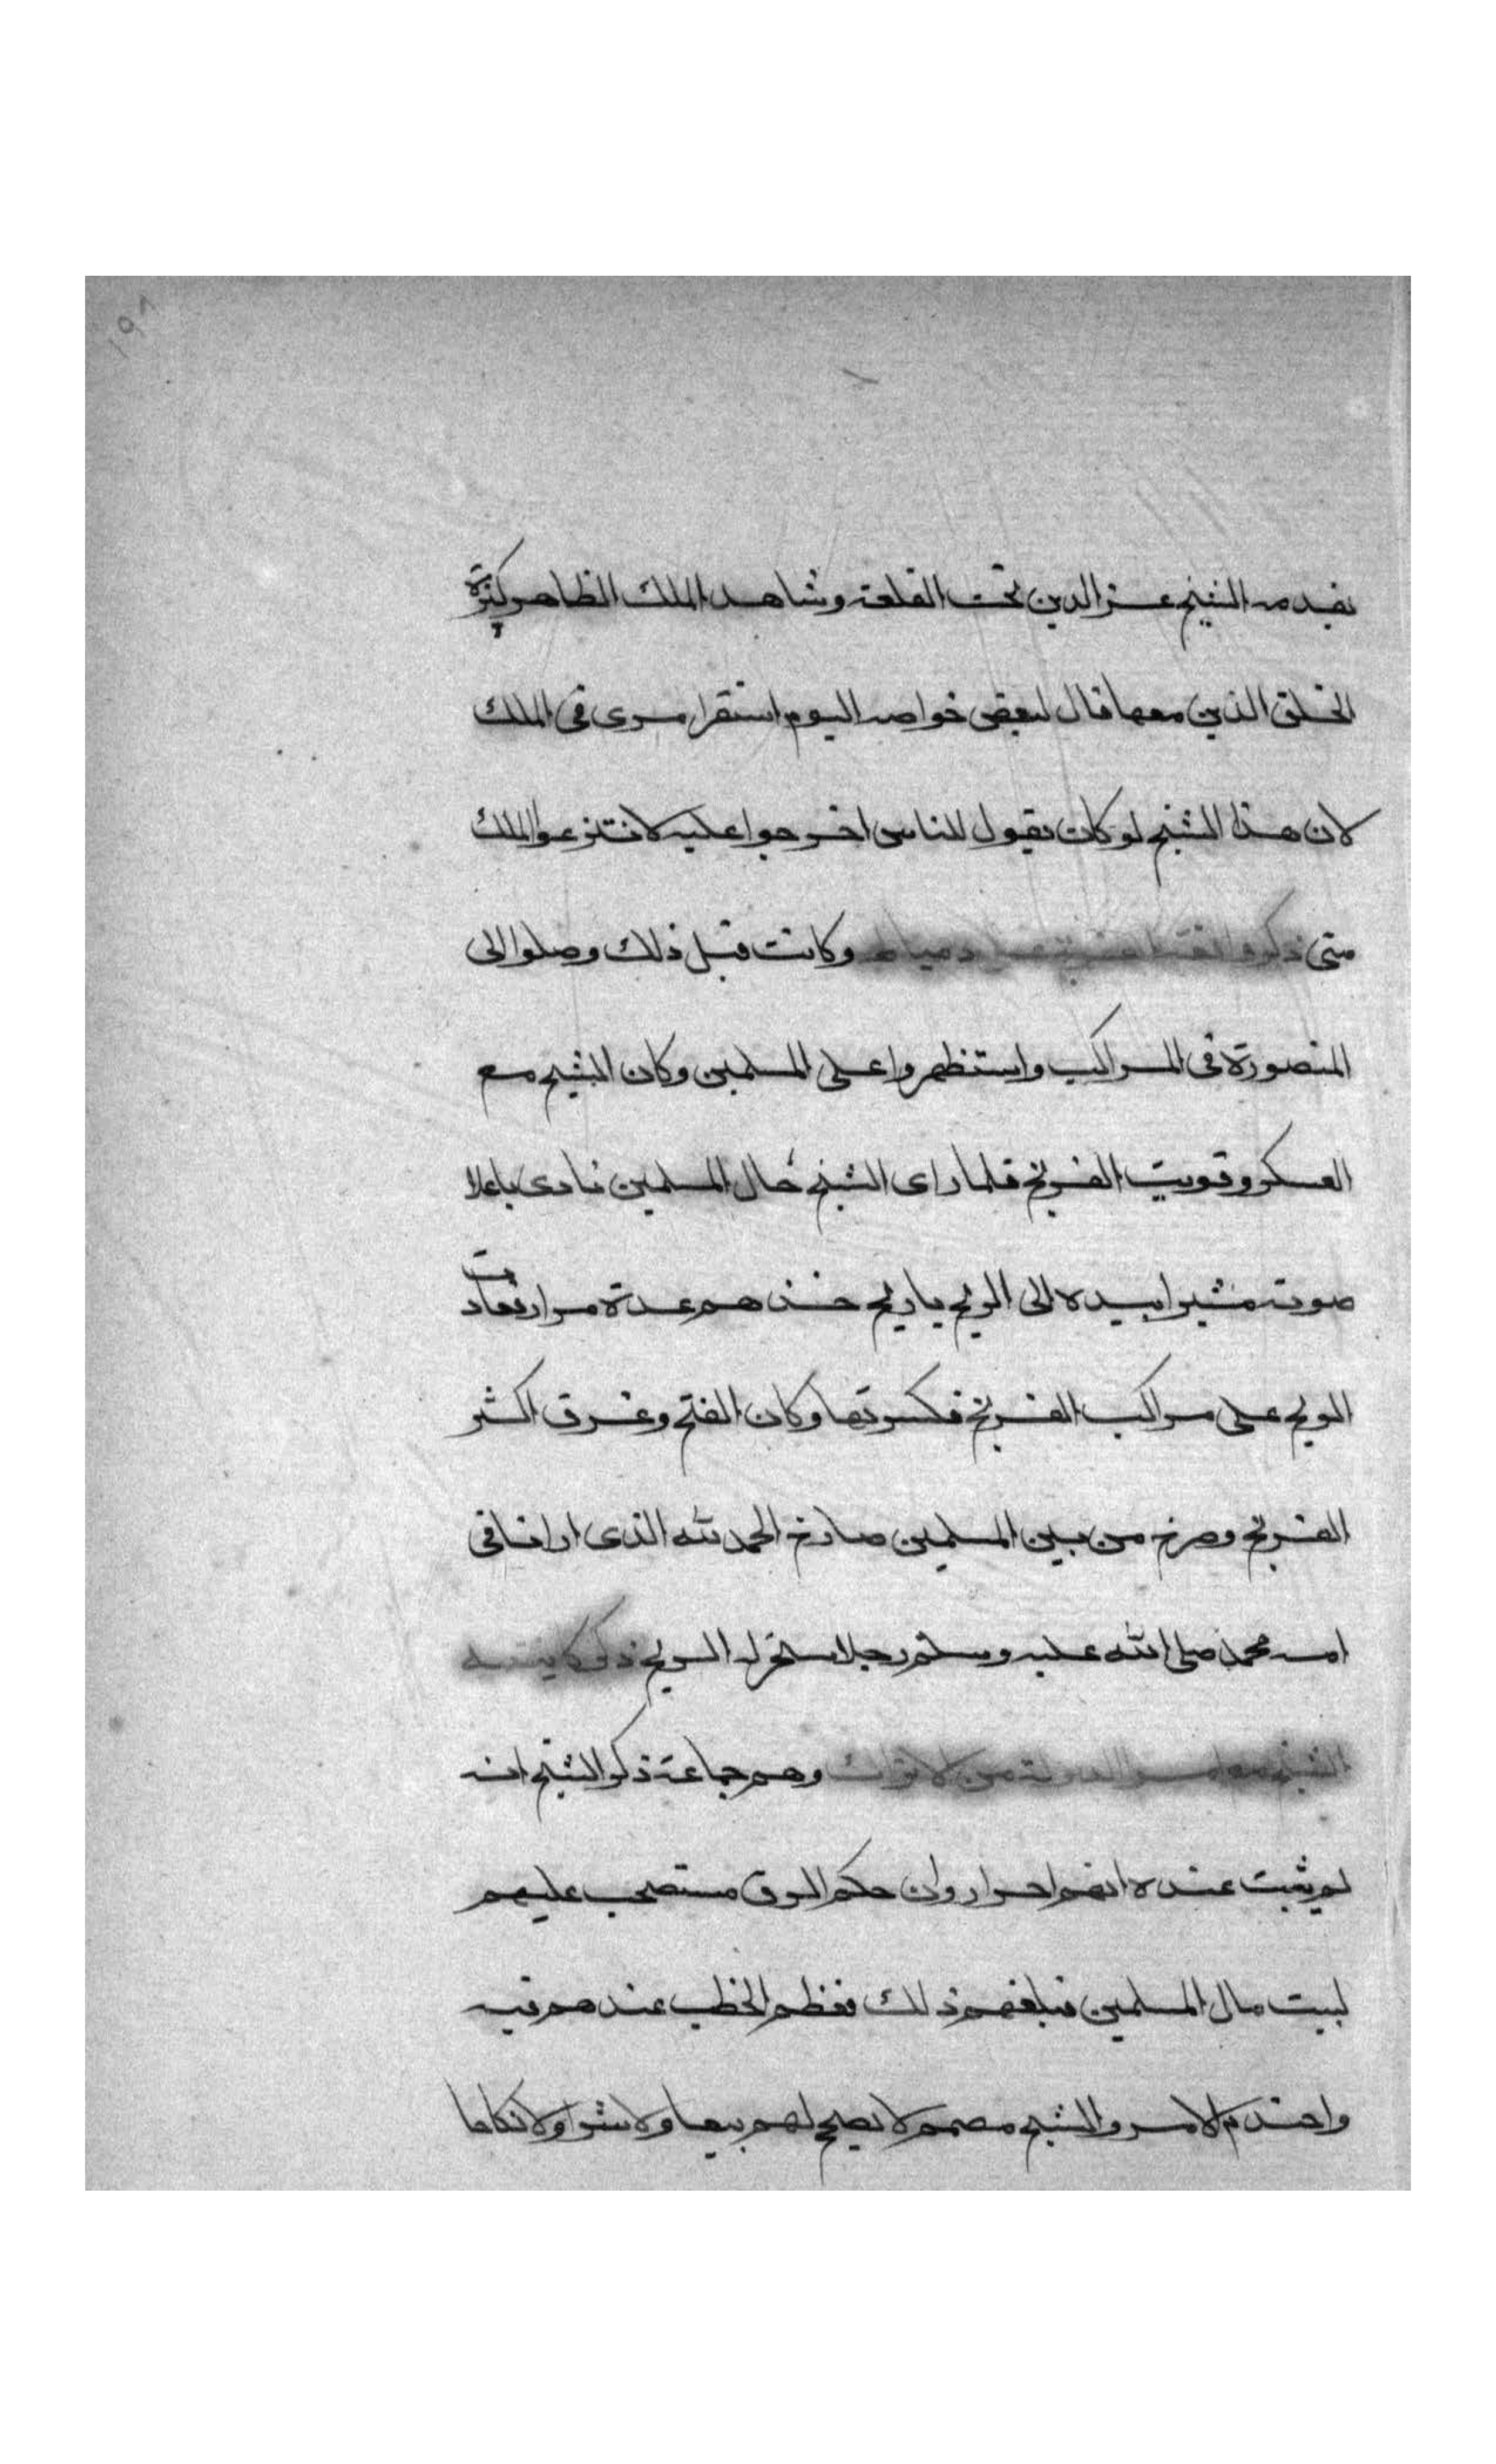 بقدمه الشيخ عز الدين تحت القلعة وشاهد الملك الظاهر كثرة
الخلق الذين معها قال لبعض خواصه اليوم استقر امرى فى الملك
لان هذا الشيخ لو كان يقول للناس اخرجوا عليه لانتزعوا الملك
منى ذكر واقعة الفرنج على دمياط وكانت قبل ذلك وصلوا الى
المنصورة فى المراكب واستظهروا على المسلمين وكان الشيخ مع
العسكر وقويت الفرنج فلما راى الشيخ حال المسلمين نادى باعلا
صوته مشيرا بيده الى الريح يا ريح خذهم عدة مرار فعادت
الريح على مراكب الفرنج فكسرتها وكان الفتح وغرق اكثر
الفرنج وصرخ من بين المسلمين صارخ الحمد لله الذى ارانا فى
امه محمد صلى الله عليه وسلم رجلا سخر له الريح ذكر كاينه
الشيخ مع امرا الدولة من الاتراك وهم جماعة ذكر الشيخ انه
لم يثبت عنده انهم احرار وان حكم الرق مستصحب عليهم
لبيت مال المسلمين فبلغهم ذلك فعظم الخطب عندهم فيه
واحتدم الامر والشيخ مصمم لا يصح لهم بيعا ولا شرا ولا نكاحا